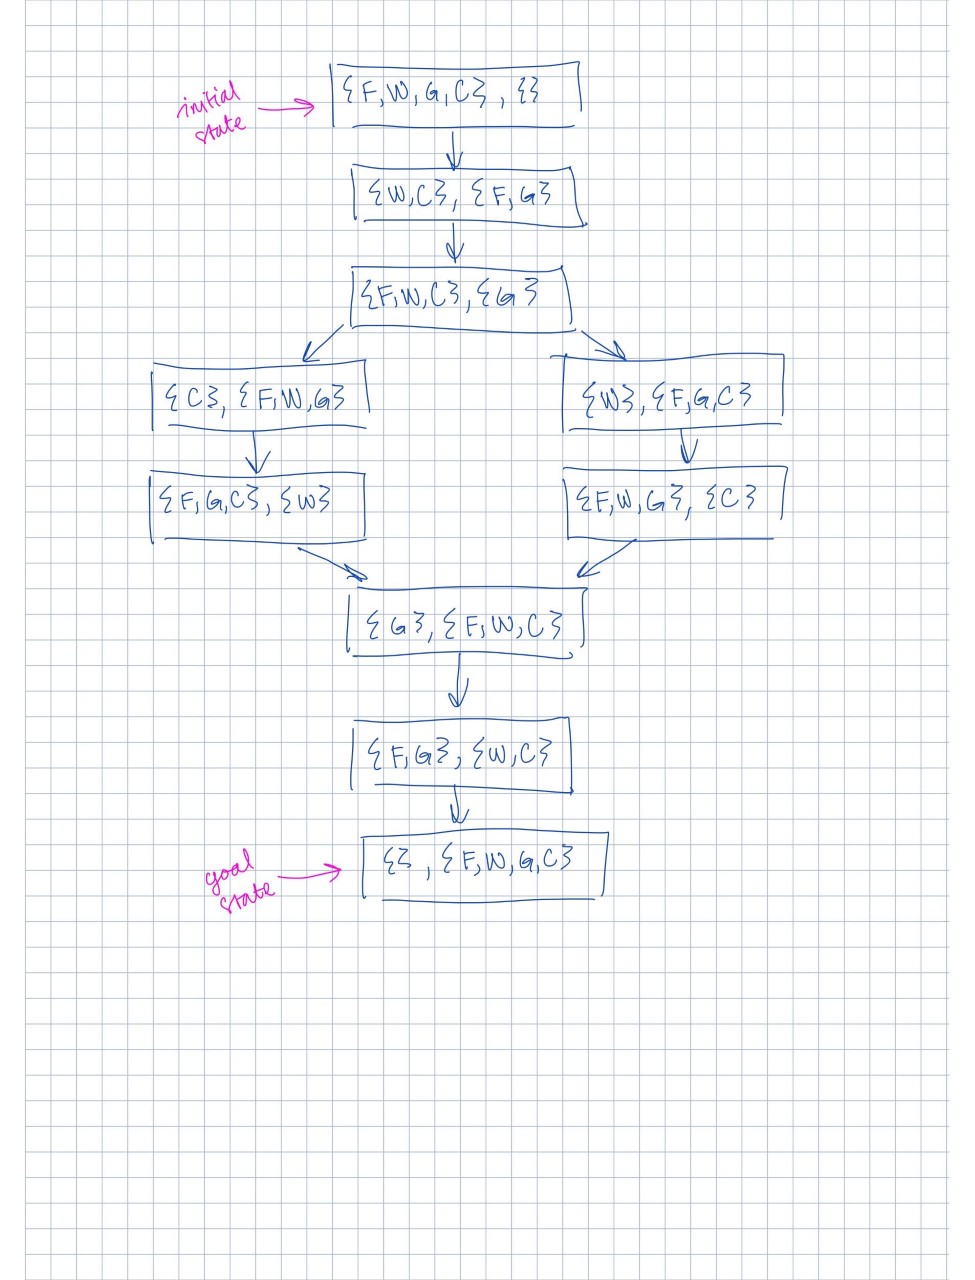 initial
state
{F,W,G,C}, {}
{W,C}, {F,G}
{F,W,C}, {G}
{C}, {F,W,G}
{W}, {F,G,C}
{F,G,C}, {W}
{F,W,G}, {C}
{G}, {F,W,C}
{F,G}, {W,C}
goal
state
{}, {F,W,G,C}